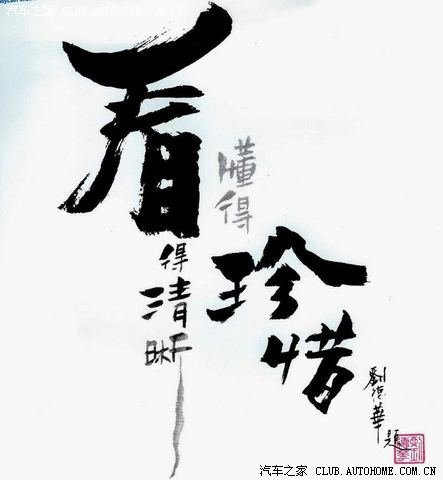 汽车之家 CLUB.AUTOHOME.COM.CN
看
得清晰
懂得
珍惜
劉德華題
汽车之家 CLUB.AUTOHOME.COM.CN